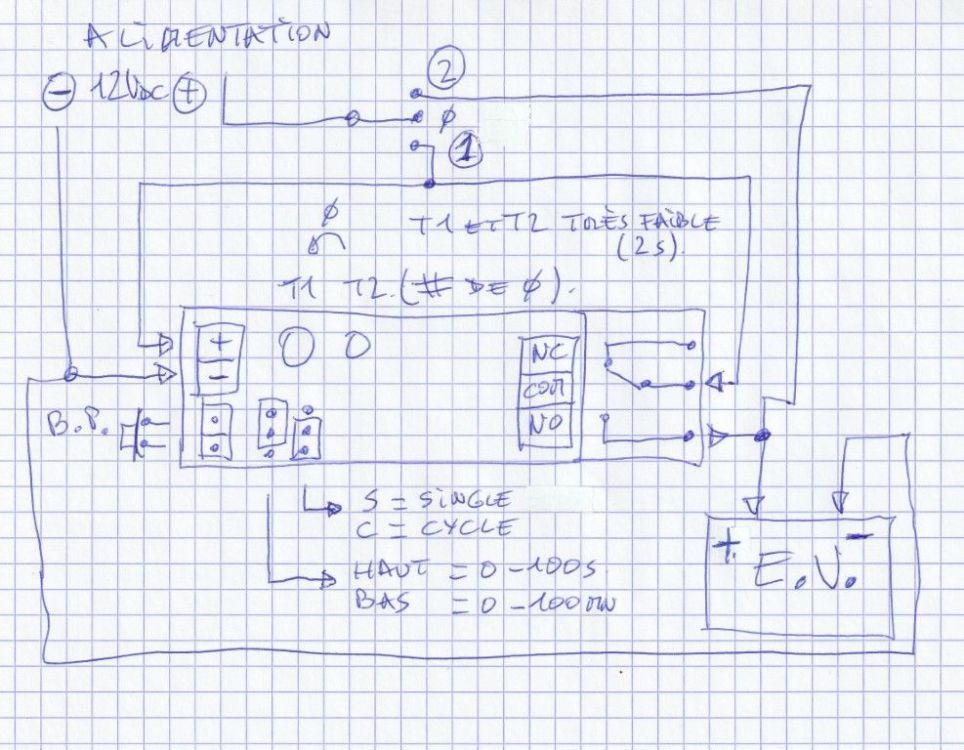 ALIMENTATION
②
⊖ 12Vdc ⊕
φ
①
φ
T1 ET T2 TRÈS FAIBLE
(2s).
T1 T2. (# DE φ).
+
NC
-
COM
B.P.
NO
S = SINGLE
C = CYCLE
+ -
E.V.
HAUT = 0-100s.
BAS = 0-100MN